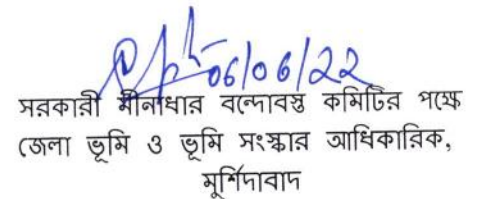 06/06/22
সরকারী মীনাধার বন্দোবস্ত কমিটির পক্ষে
জেলা ভূমি ও ভূমি সংস্কার আধিকারিক,
মুর্শিদাবাদ